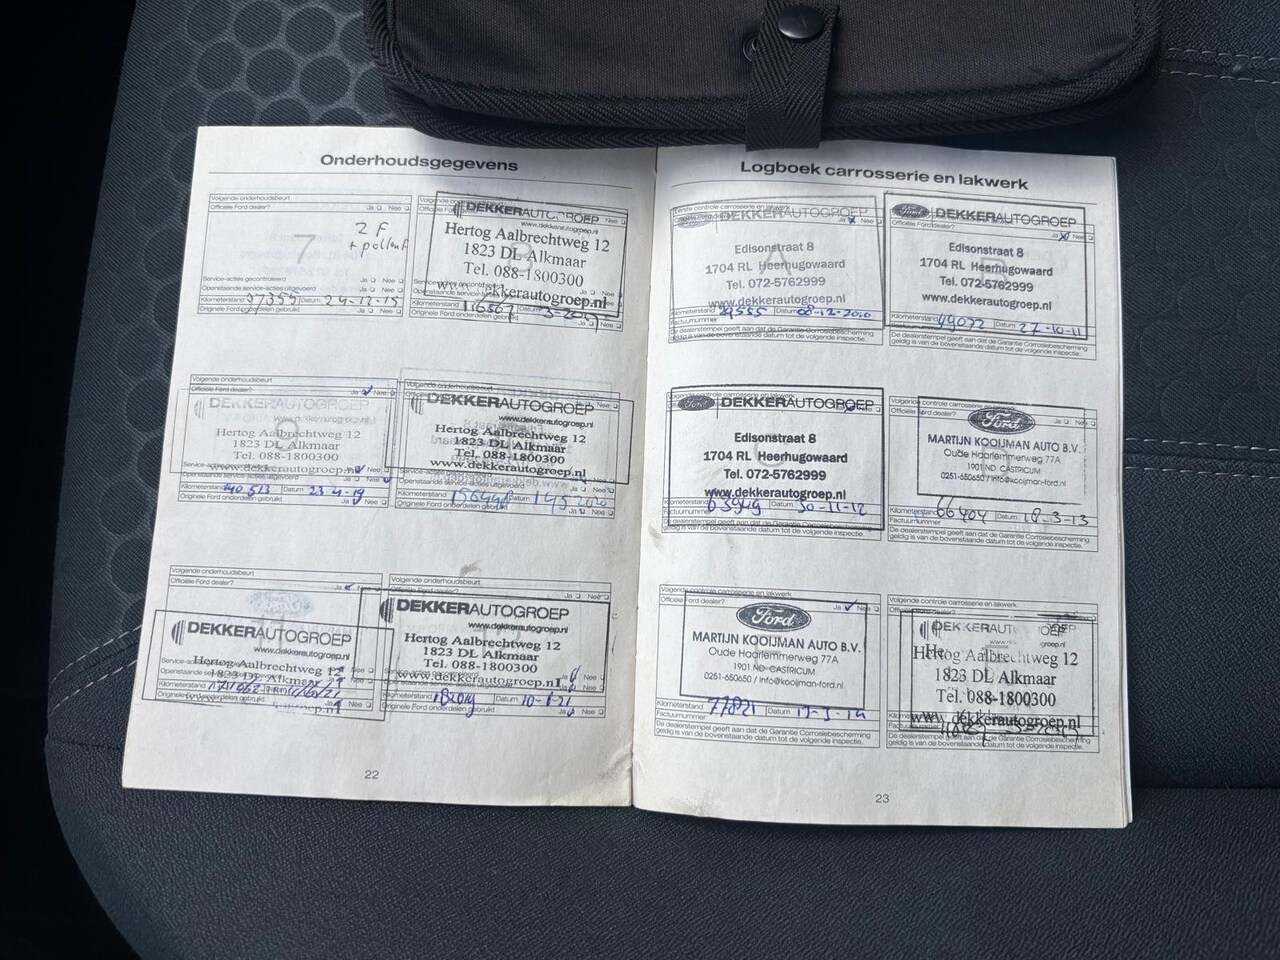 Onderhoudsgegevens
Volgende onderhoudsbeurt
Officiële Ford dealer? Ja Nee
7
2 F
+ pollenf
Service-acties gecontroleerd Ja Nee
Openstaande service-acties uitgevoerd Ja Nee
Kilometerstand 97355 Datum 24-12-15
Originele Ford onderdelen gebruikt Ja Nee
DEKKERAUTOGROEP
www.dekkerautogroep.nl
Hertog Aalbrechtweg 12
1823 DL Alkmaar
Tel. 088-1800300
www.dekkerautogroep.nl
Kilometerstand 116567 Datum
Originele Ford onderdelen gebruikt Ja Nee
Volgende onderhoudsbeurt
Officiële Ford dealer? Ja Nee
DEKKERAUTOGROEP
www.dekkerautogroep.nl
Hertog Aalbrechtweg 12
1823 DL Alkmaar
Tel. 088-1800300
www.dekkerautogroep.nl
Openstaande service-acties uitgevoerd Ja Nee
Kilometerstand 140513 Datum 23-4-19
Originele Ford onderdelen gebruikt Ja Nee
Volgende onderhoudsbeurt
DEKKERAUTOGROEP
www.dekkerautogroep.nl
Hertog Aalbrechtweg 12
1823 DL Alkmaar
Tel. 088-1800300
www.dekkerautogroep.nl
Kilometerstand Datum
Originele Ford onderdelen gebruikt Ja Nee
Volgende onderhoudsbeurt
Officiële Ford dealer? Ja Nee
DEKKERAUTOGROEP
www.dekkerautogroep.nl
Hertog Aalbrechtweg 12
1823 DL Alkmaar
Tel. 088-1800300
Kilometerstand
Volgende onderhoudsbeurt
Officiële Ford dealer?
DEKKERAUTOGROEP
www.dekkerautogroep.nl
Hertog Aalbrechtweg 12
1823 DL Alkmaar
Tel. 088-1800300
www.dekkerautogroep.nl
Kilometerstand Datum
Originele Ford onderdelen gebruikt Ja Nee
22
Logboek carrosserie en lakwerk
Eerste controle carrosserie en lakwerk
DEKKERAUTOGROEP
A
Edisonstraat 8
1704 RL Heerhugowaard
Tel. 072-5762999
www.dekkerautogroep.nl
Kilometerstand 29555 Datum 08-12-2010
Factuurnummer
De dealerstempel geeft aan dat de Garantie Corrosiebescherming
geldig is van de bovenstaande datum tot de volgende inspectie.
Ford DEKKERAUTOGROEP
Officiële Ford dealer? Ja Nee
Edisonstraat 8
1704 RL Heerhugowaard
Tel. 072-5762999
www.dekkerautogroep.nl
Kilometerstand 49072 Datum 27-10-11
De dealerstempel geeft aan dat de Garantie Corrosiebescherming
geldig is van de bovenstaande datum tot de volgende inspectie.
Ford DEKKERAUTOGROEP
Edisonstraat 8
1704 RL Heerhugowaard
Tel. 072-5762999
www.dekkerautogroep.nl
Kilometerstand 63949 Datum 30-11-12
Factuurnummer
De dealerstempel geeft aan dat de Garantie Corrosiebescherming
geldig is van de bovenstaande datum tot de volgende inspectie.
Volgende controle carrosserie en lakwerk
Officiële Ja Nee
Ford
MARTIJN KOOIJMAN AUTO B.V.
Oude Haarlemmerweg 77A
1901 ND CASTRICUM
0251-650650 / info@kooijman-ford.nl
Kilometerstand 66404 Datum 18-3-13
Factuurnummer
De dealerstempel geeft aan dat de Garantie Corrosiebescherming
geldig is van de bovenstaande datum tot de volgende inspectie.
Volgende controle carrosserie en lakwerk
Officiële Ford dealer? Ja Nee
Ford
MARTIJN KOOIJMAN AUTO B.V.
Oude Haarlemmerweg 77A
1901 ND CASTRICUM
0251-650650 / info@kooijman-ford.nl
Kilometerstand 77821 Datum
Factuurnummer
De dealerstempel geeft aan dat de Garantie Corrosiebescherming
geldig is van de bovenstaande datum tot de volgende inspectie.
Volgende controle carrosserie en lakwerk
Hertog Aalbrechtweg 12
1823 DL Alkmaar
Tel. 088-1800300
www.dekkerautogroep.nl
De dealerstempel geeft aan dat de Garantie Corrosiebescherming
geldig is van de bovenstaande datum tot de volgende inspectie.
23